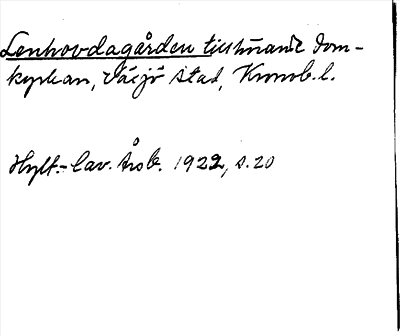 Lenhovdagården tillhörande Dom-
kyrkan, Växjö stad, Kronob. l.
Hylt.-Cav. Årsb. 1922, s. 20